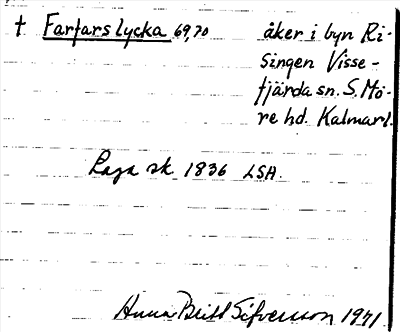 † Farfars lycka 69,70 åker i byn Ri-
singen Visse-
fjärda sn. S. Mö-
re hd. Kalmarl.
Laga sk. 1836 LSA.
Anna Britt Sifversson 1971.